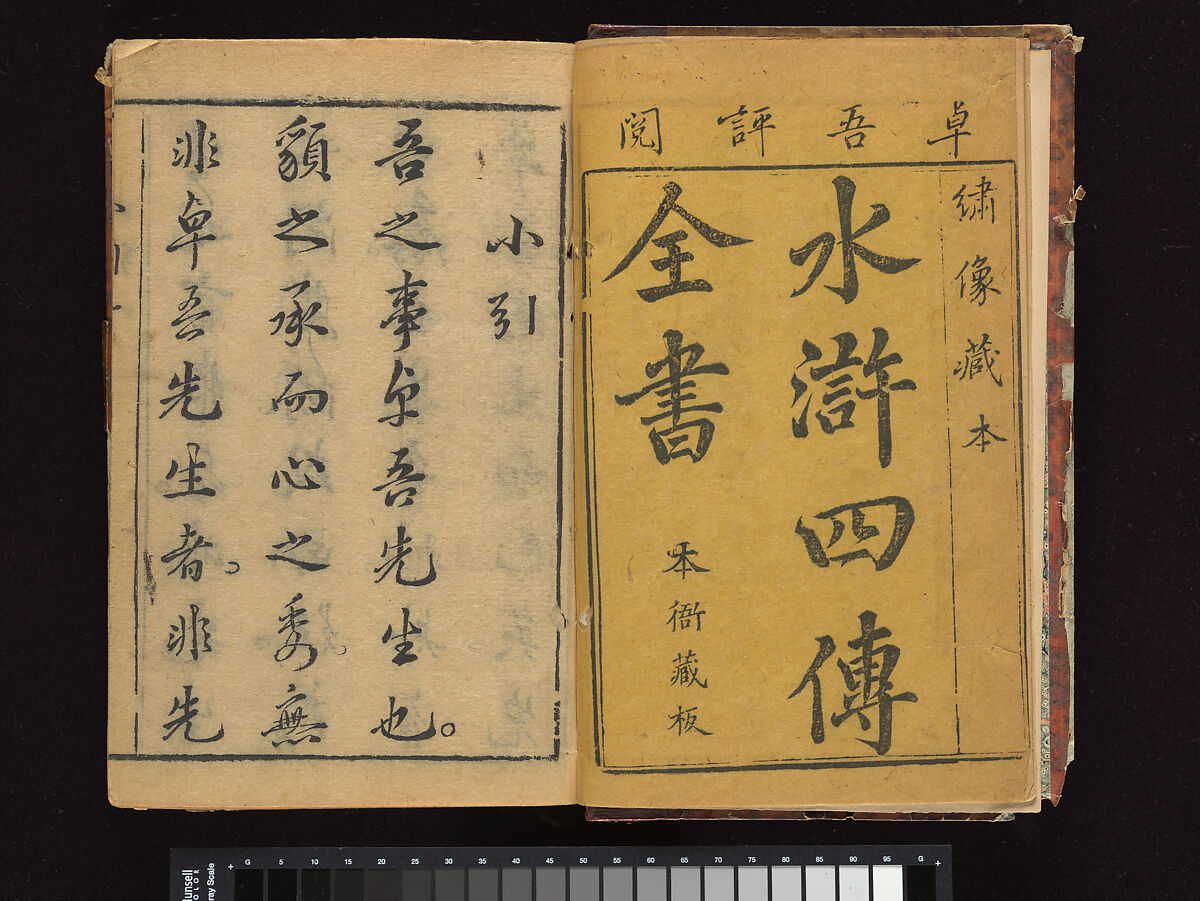 卓吾評閱
繡像藏本
水滸四傳
全書
本衙藏板
小引
吾之事卓吾先生也。
貌之承而心之委。無
非卓吾先生者。非先
G 5 10 15 20 25 30 35 40 45 50 55 60 65 70 75 80 85 90 95 G